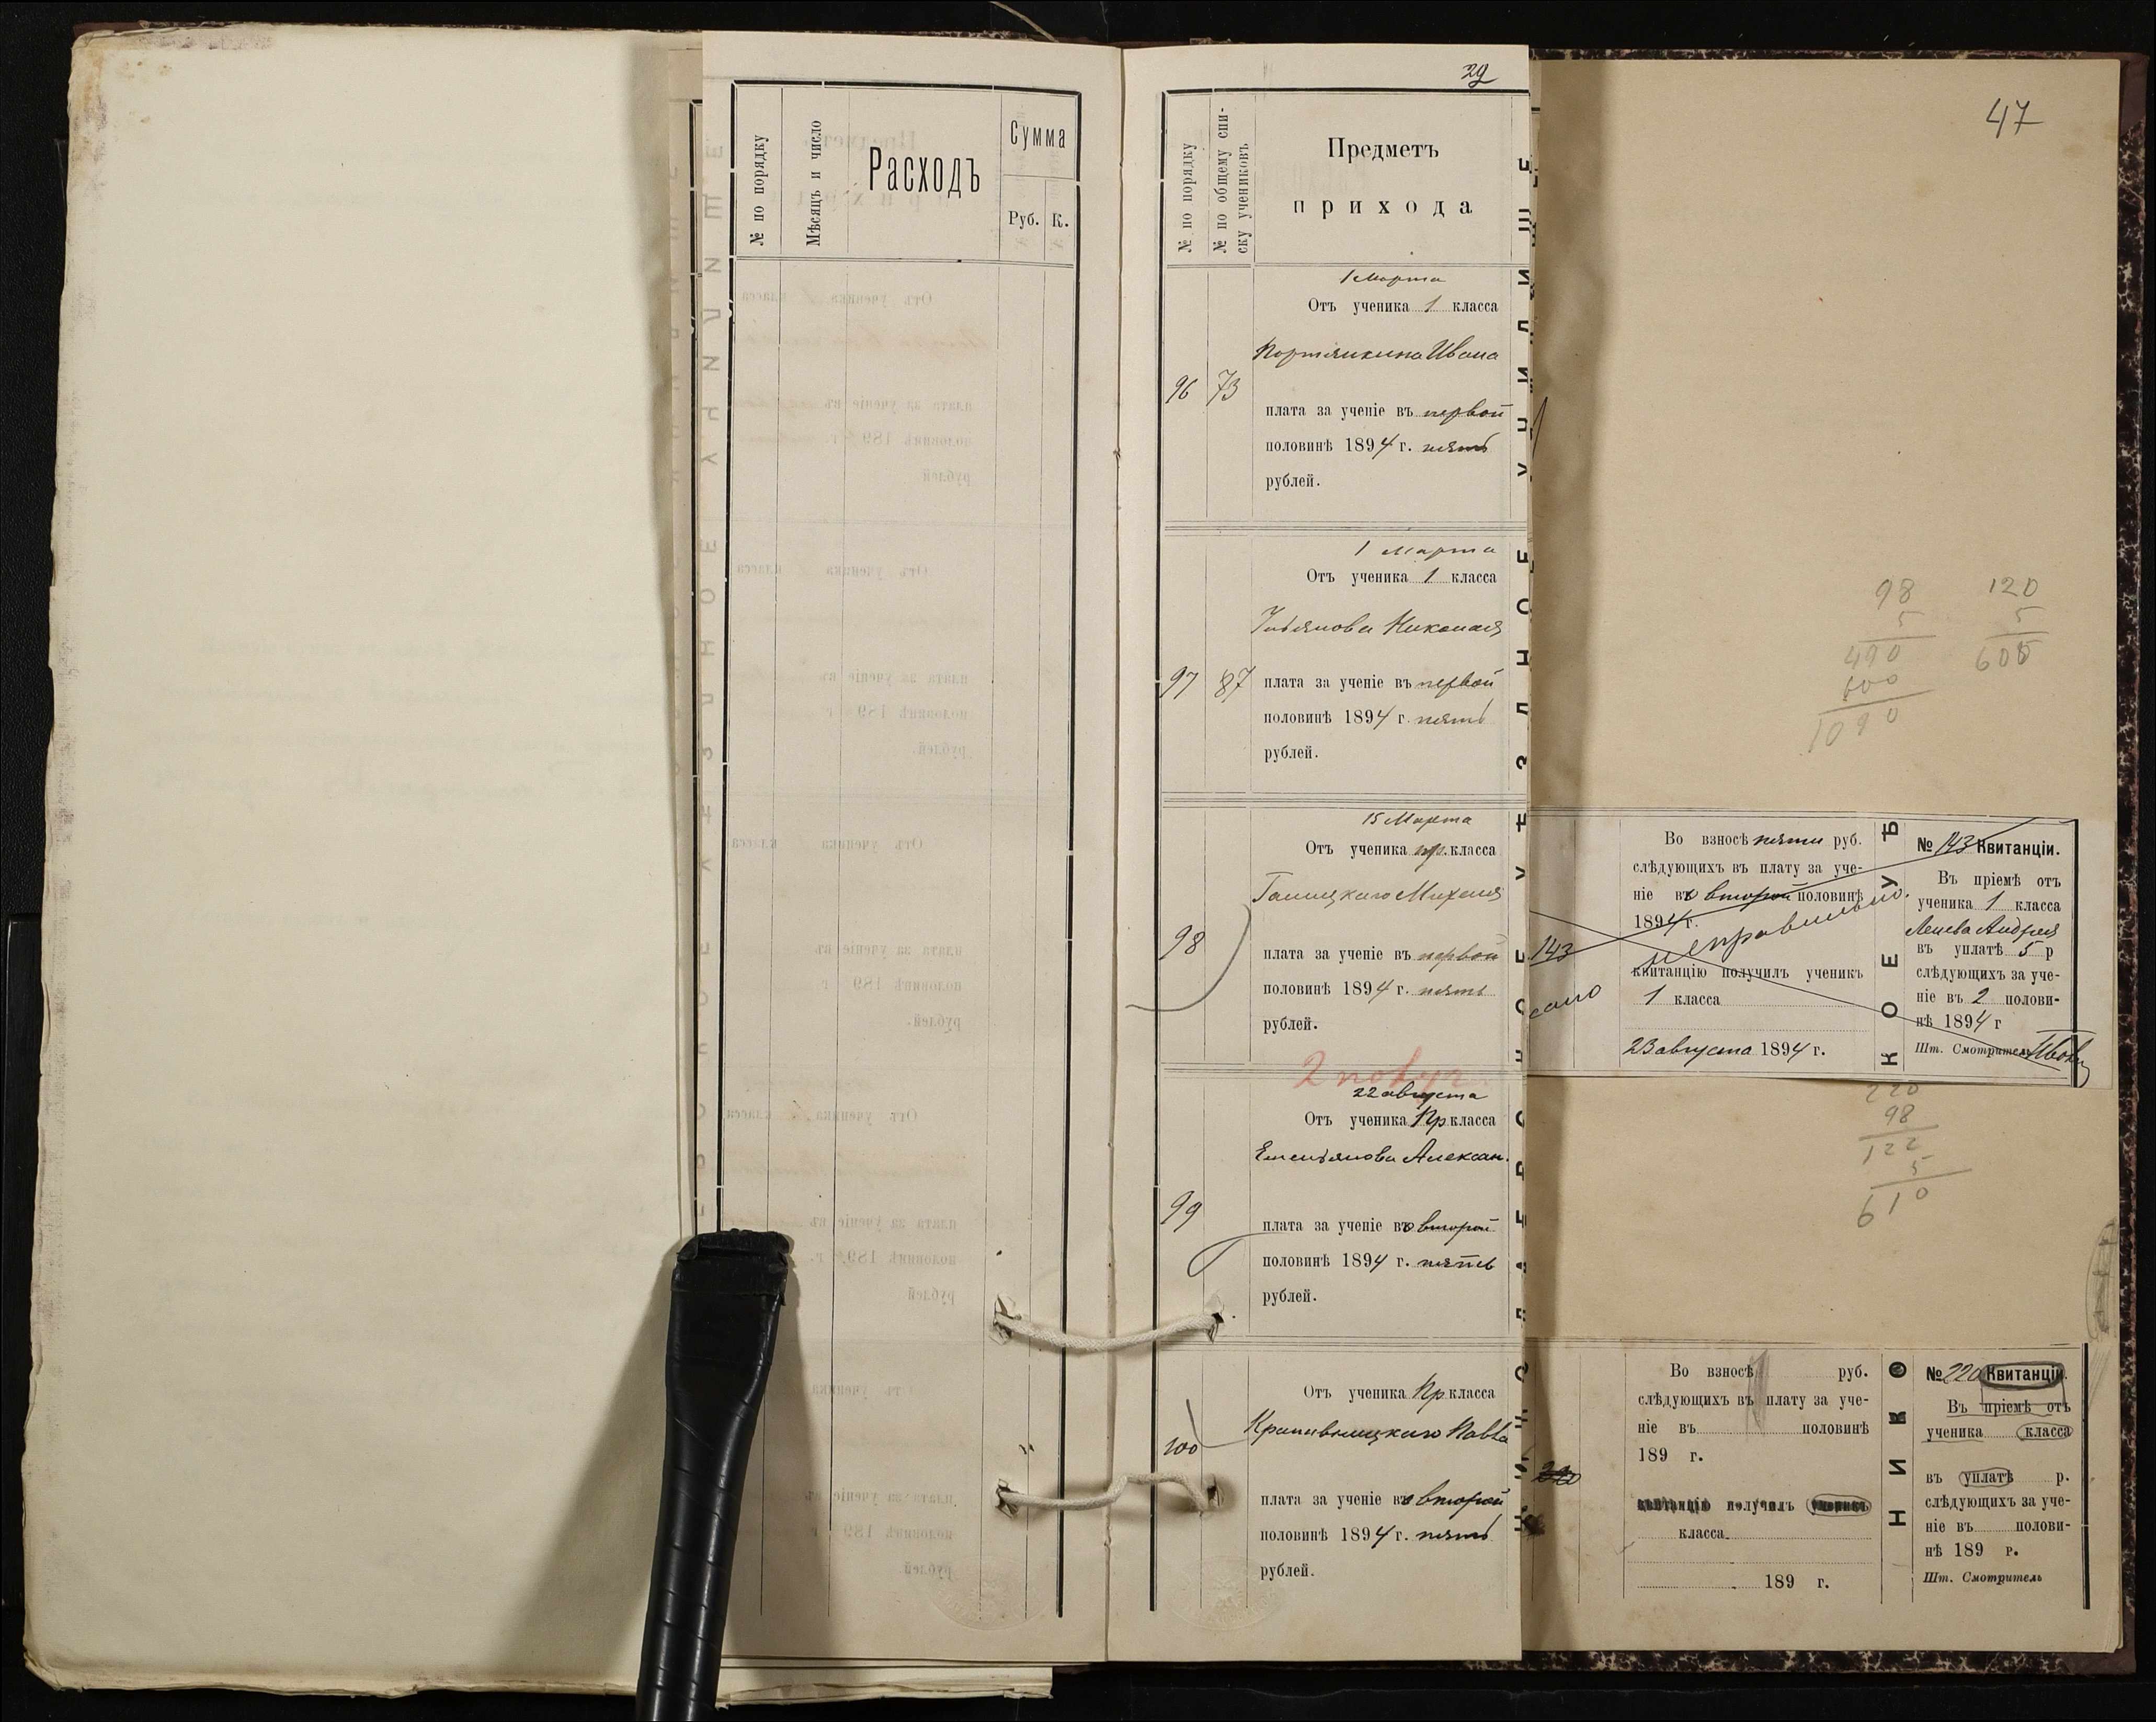 29
47
№ по порядку
Мѣсяцъ и число
Расходъ
Сумма
Руб. К.
№ по порядку
№ по общему спи-
ску учениковъ
Предметъ
прихода
1 Марта
Отъ ученика 1 класса
Портянкина Ивана
96 73
плата за ученіе въ первой
половинѣ 1894 г. пять
рублей.
1 Марта
Отъ ученика 1 класса
Ульянова Николая
97 87
плата за ученіе въ первой
половинѣ 1894 г. пять
рублей.
15 Марта
Отъ ученика пр. класса
Галицкаго Михаила
98
плата за ученіе въ первой
половинѣ 1894 г. пять
рублей.
2 полуг.
22 августа
Отъ ученика Пр класса
Емельянова Алексан.
99
плата за ученіе во второй
половинѣ 1894 г. пять
рублей.
Отъ ученика Пр класса
Крапивницкаго Павла
100
плата за ученіе во второй
половинѣ 1894 г. пять
рублей.
98
5
490
600
1090
120
5
600
143
Во взносѣ пяти руб.
слѣдующихъ въ плату за уче-
ніе во второй половинѣ
1894 г.
неправильно
квитанцію получилъ ученикъ
1 класса
23 августа 1894 г.
КОЕ УѢ
№ 143 Квитанціи.
Въ пріемѣ отъ
ученика 1 класса
Андрея
въ уплатѣ 5 р
слѣдующихъ за уче-
ніе въ 2 полови-
нѣ 1894 г
Шт. Смотритель
220
98
122
5
610
220
Во взносѣ руб.
слѣдующихъ въ плату за уче-
ніе въ половинѣ
189 г.
квитанцію получилъ ученикъ
класса
189 г.
НИКО
№ 220 Квитанціи.
Въ пріемѣ отъ
ученика класса
въ уплатѣ р.
слѣдующихъ за уче-
ніе въ полови-
нѣ 189 г.
Шт. Смотритель